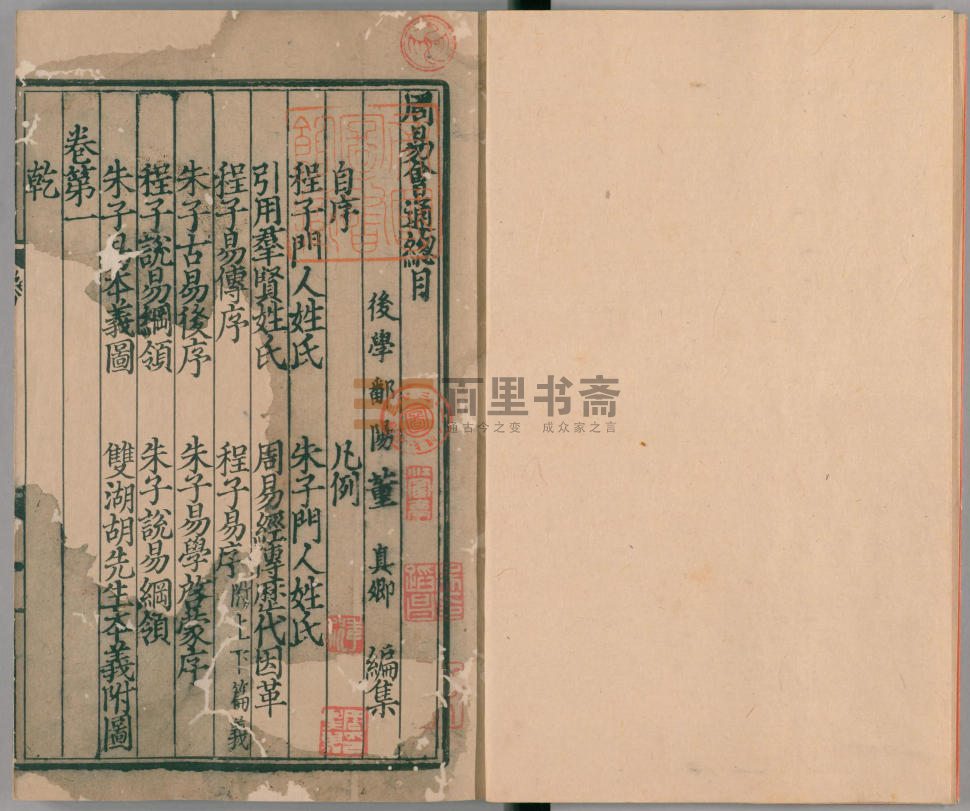 周易會通總目
後學鄱陽董真卿編集
自序 凡例
程子門人姓氏 朱子門人姓氏
引用羣賢姓氏 周易經傳歷代因革
程子易傳序 程子易序附上下篇義
朱子古易後序 朱子易學啓蒙序
程子說易綱領 朱子說易綱領
朱子易本義圖 雙湖胡先生本義附圖
卷第一
乾
百里书斋
通古今之变 成众家之言